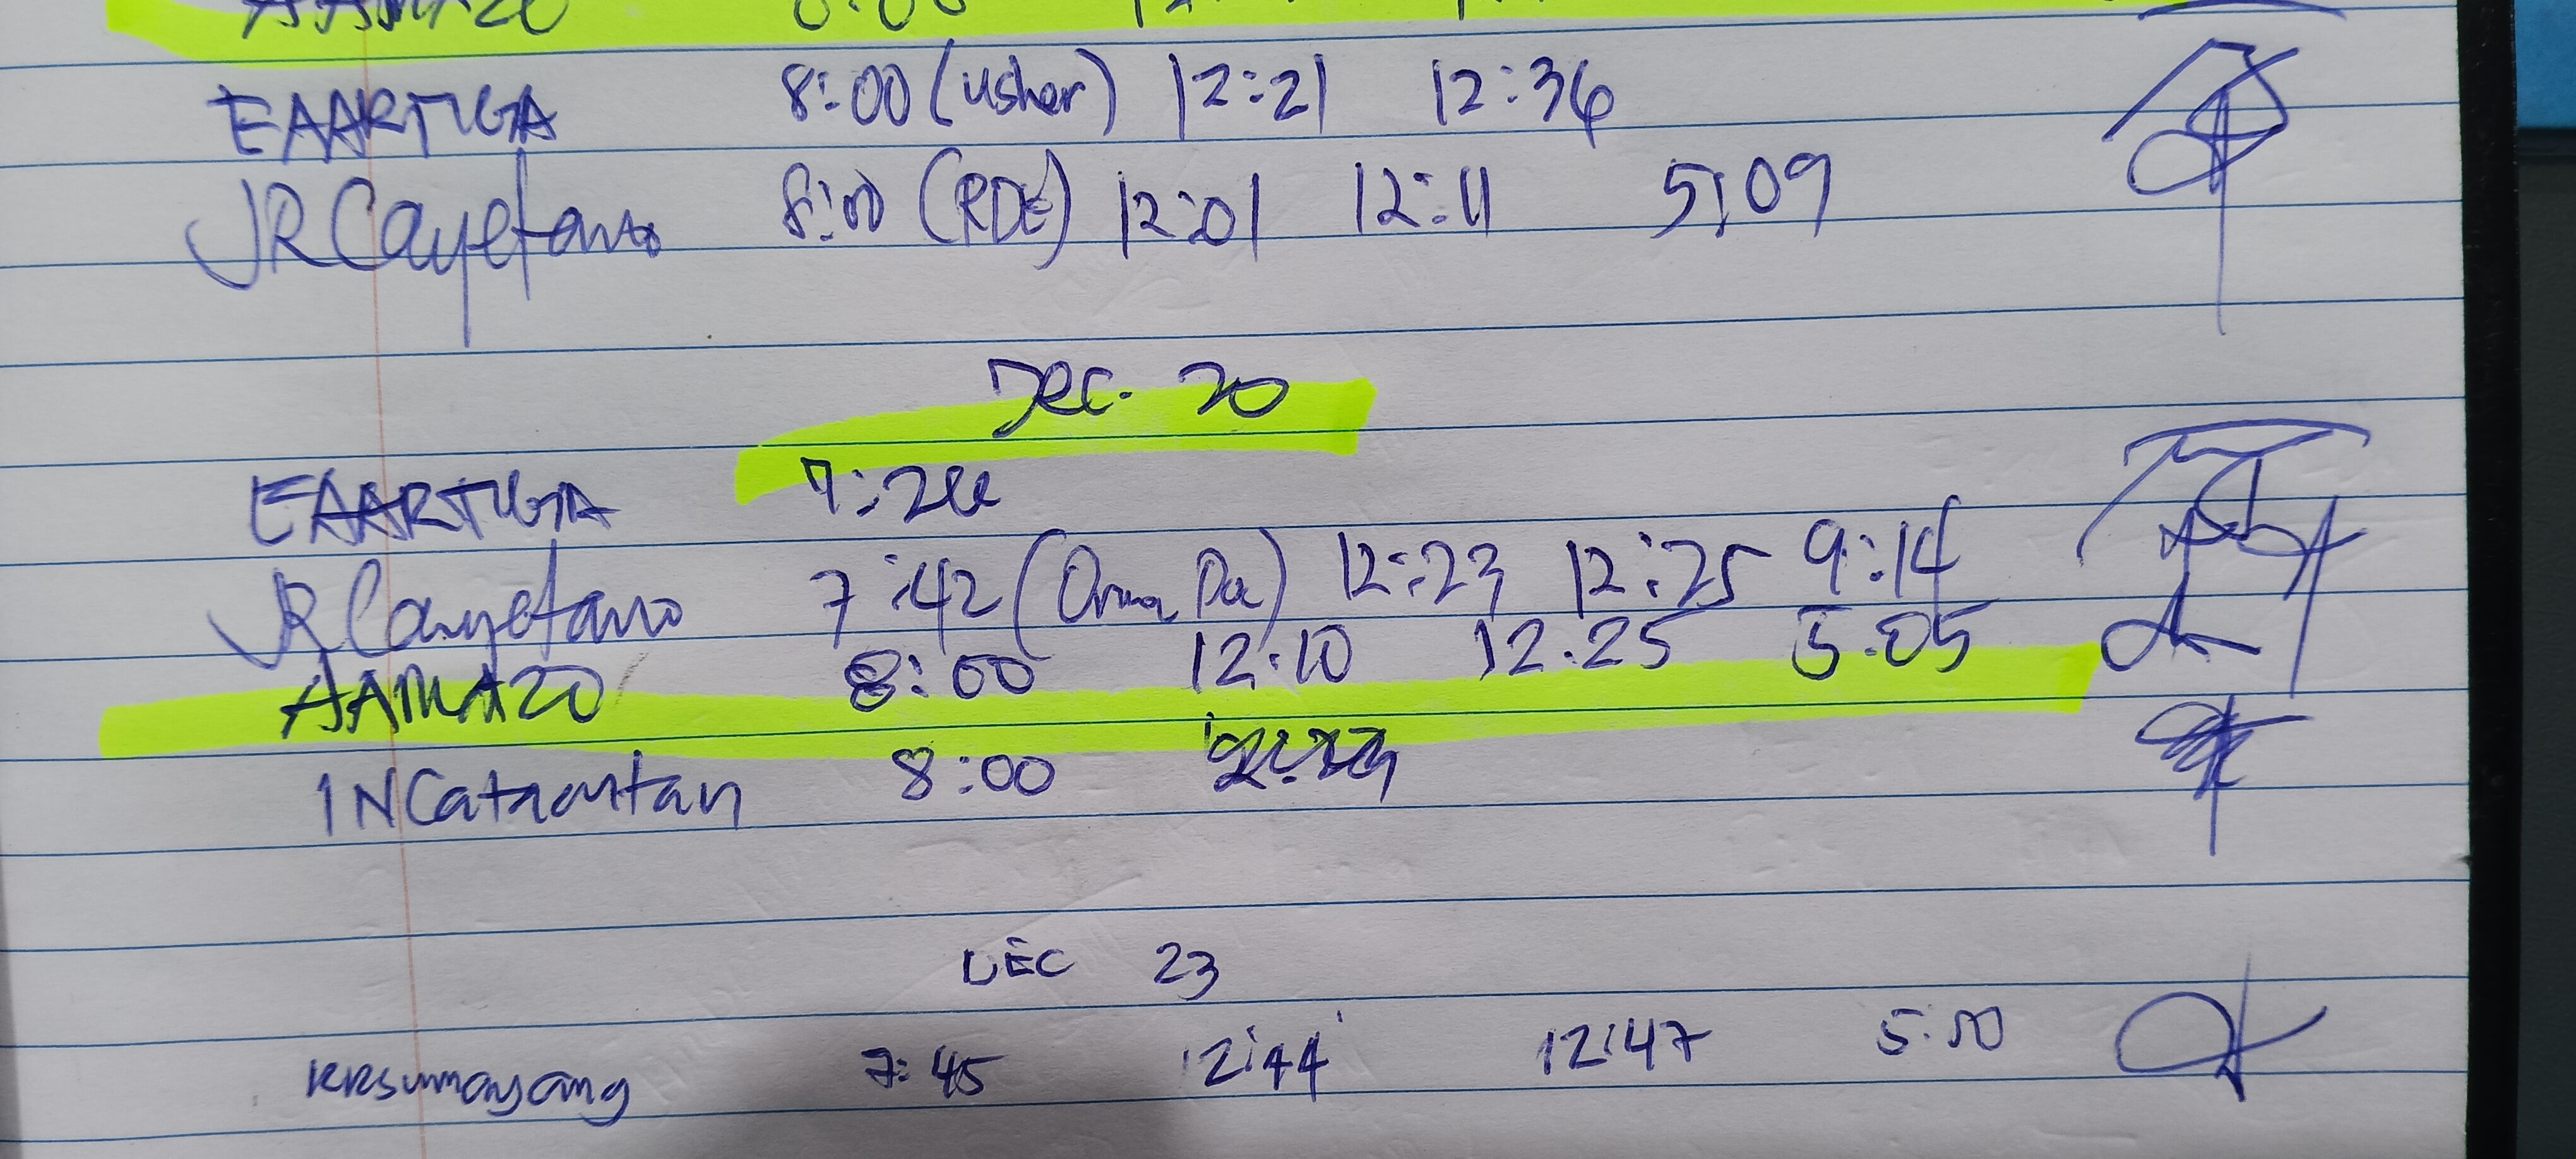 AAMAZO 8:00
EAARTIGA 8:00 (usher) 12:21 12:36
JRCayetano 8:00 (RDE) 12:01 12:11 5:09
Dec. 20
EAARTIGA 7:24
JRCayetano 7:42 ( 12:23 12:25 9:14
AAMAZO 8:00 12:10 12:25 5:05
INCatantan 8:00
DEC 23
KRSumayang 7:45 12:44 12:47 5:00